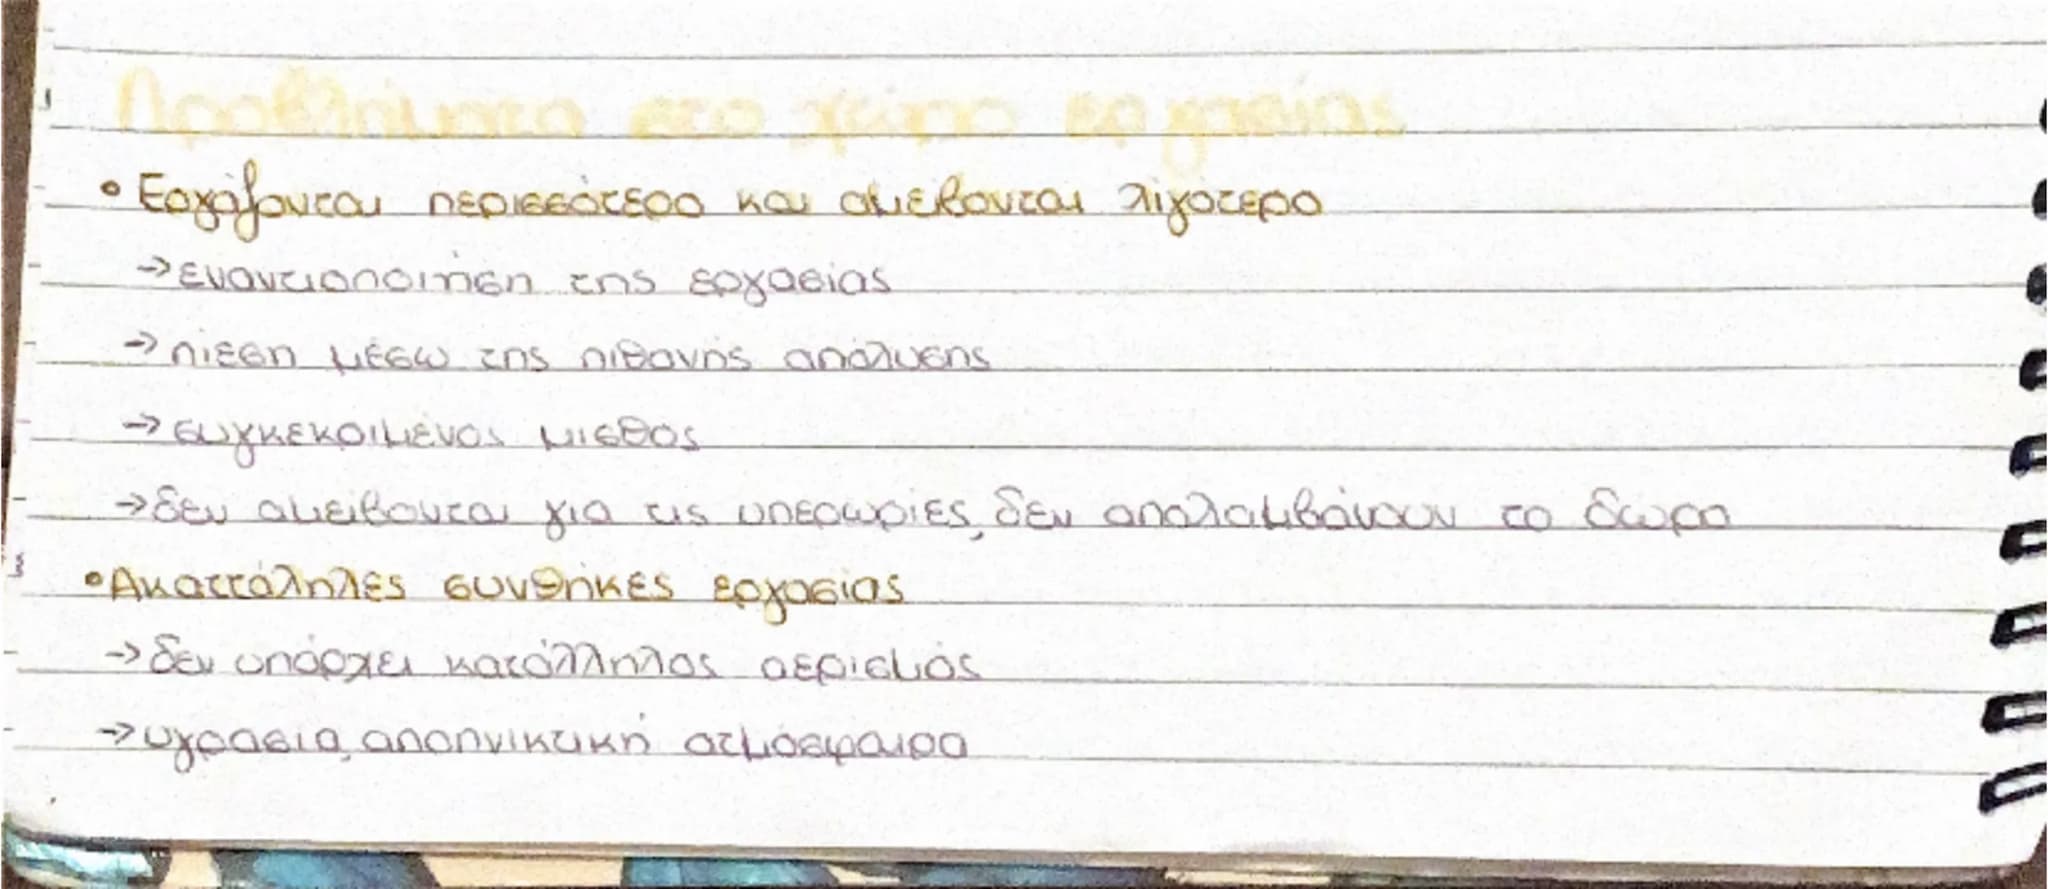 Προβλήματα στο χώρο εργασίας
• Εργάζονται περισσότερο και αμείβονται λιγότερο
→ εναντιοποίηση της εργασίας
→ πίεση μέσω της πιθανής απόλυσης
→ συγκεκριμένος μισθός
→ δεν αμείβονται για τις υπερωρίες, δεν απολαμβάνουν το δώρο
• Ακαττάληλες συνθήκες εργασίας
→ δεν υπάρχει κατάλληλος αερισμός
→ υγρασία, αποπνικτική ατμόσφαιρα